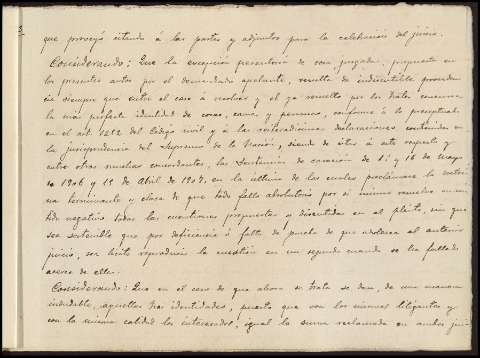 3
que proveyó citando á las partes y adjuntos para la celebracion del juicio.
Considerando: Que la excepción perentoria de cosa juzgada, propuesta en
los presentes autos por el demandado apelante, resulta de indiscutible proceden-
cia siempre que entre el caso á resolver y el ya resuelto por los Trales concurra
la más perfecta identidad de cosas, causas y personas, conforme á lo preceptuado
en el art. 1252 del Código civil y á las reiteradísimas declaraciones contenidas en
la jurisprudencia del Supremo de la Nación, siendo de citar á este respecto y
entre otras muchas concordantes, las Sentencias de casación de 1º y 16 de Mayo
de 1906 y 19 de Abril de 1907, en la última de las cuales proclámase la
terminante y clara de que todo fallo absolutorio por si mismo resuelve en sen-
tido negativo todas las cuestiones propuestas y discutidas en el pleito, sin que
sea sostenible que por deficiencia ó falta de prueba de que adolezca el anterior
juicio, sea lícito reproducir la cuestión en un segundo cuando se ha fallado
acerca de ella.
Considerando: Que en el caso de que ahora se trata se dan, de una manera
indudable, aquellas tres identidades, puesto que son los mismos litigantes y
con la misma calidad los interesados, igual la suma reclamada en ambos jui-